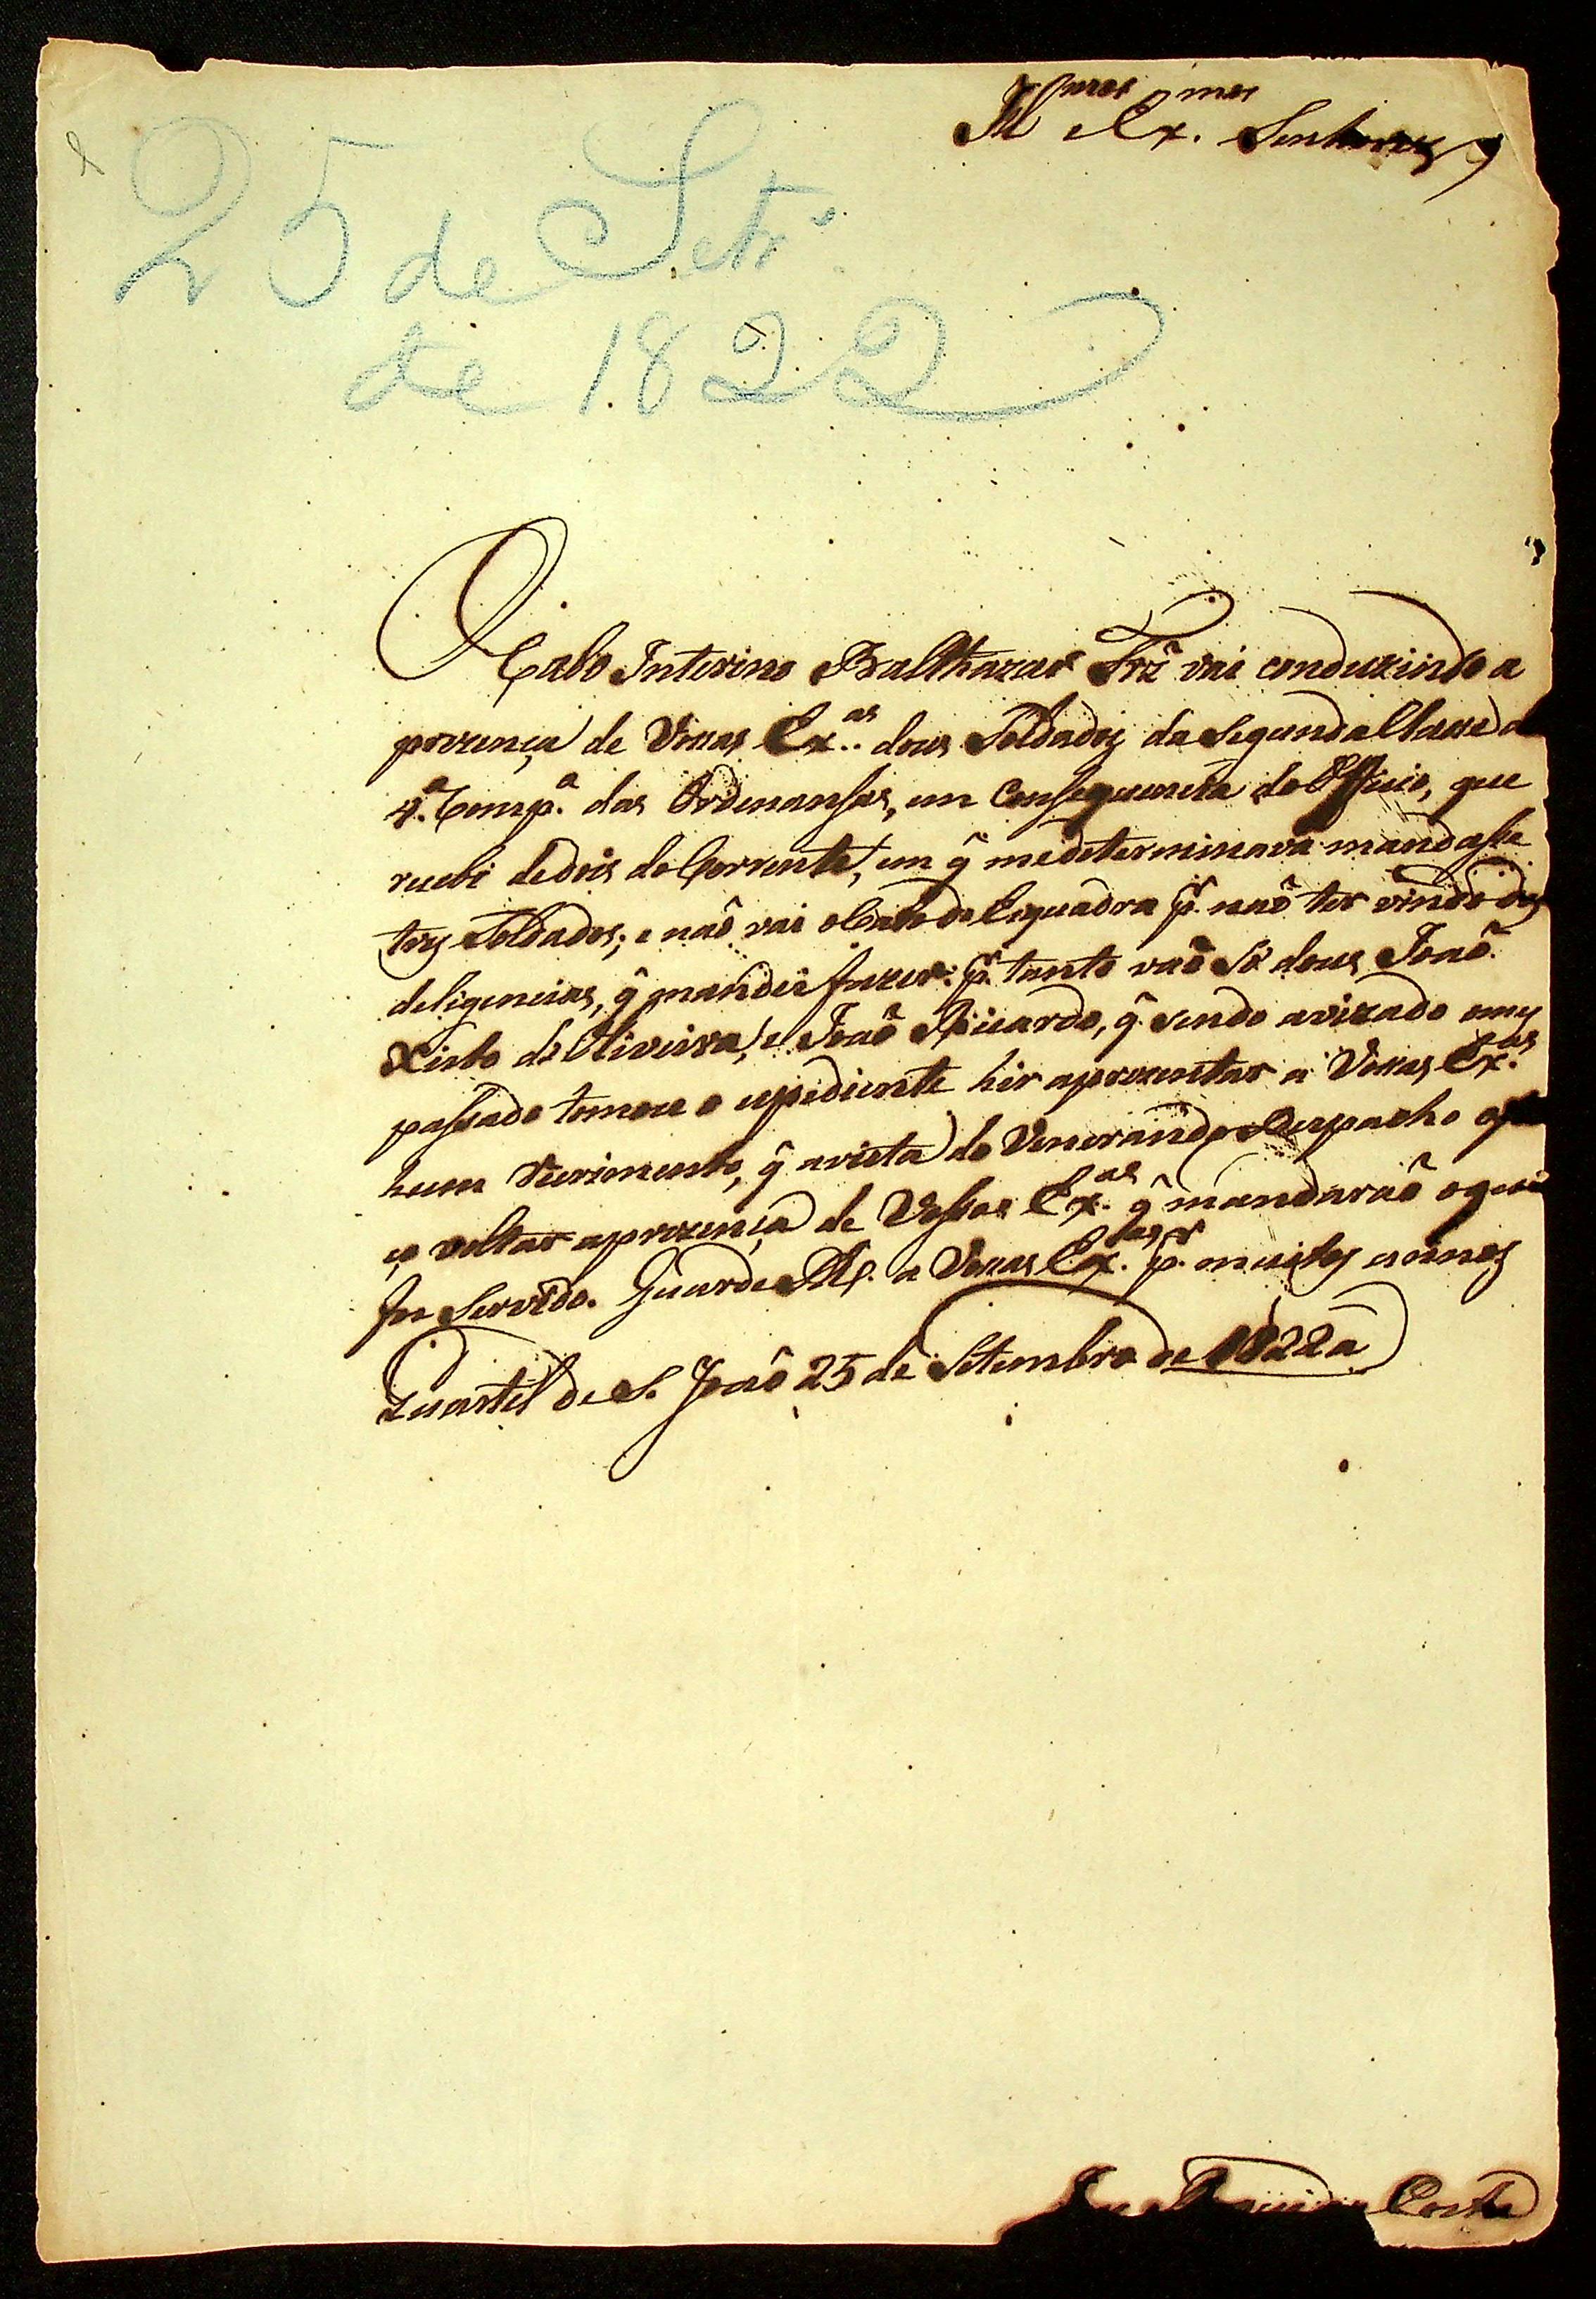 Ill.mos e Ex.mos Senhores
25 de Setr.o
de 1822
O Cabo Interino Balthazar Frz̃ vai conduzindo a
prezença de Vossas Ex.as dous Soldados da Segunda Classe d
4.a Comp.a das Ordenansas, em Consequencia do Officio, que
recebi de dois do Corrente, em q̃ me determinava mandasse
tres Soldados; e naõ vai o Cabo de Esquadra p.r naõ ter vindo das
deligencias, q̃ mandei fazer: p.r tanto vaõ Só dous Joaõ
Xisto de Oliveira, e Joaõ Ricardo, q̃ sendo avizado
passado tomou o expediente hir aprezentar a Vossas Ex.as
hum Requerimento, q̃ avista do Venerando Despacho
voltar a prezença de Vossas Ex.as q̃ mandaraõ o que
for Servido. Guarde D.s a Vossas Ex.as p.r muitos annos
Quartel de S. Joaõ 25 de Setembro de 1822 a
Costa